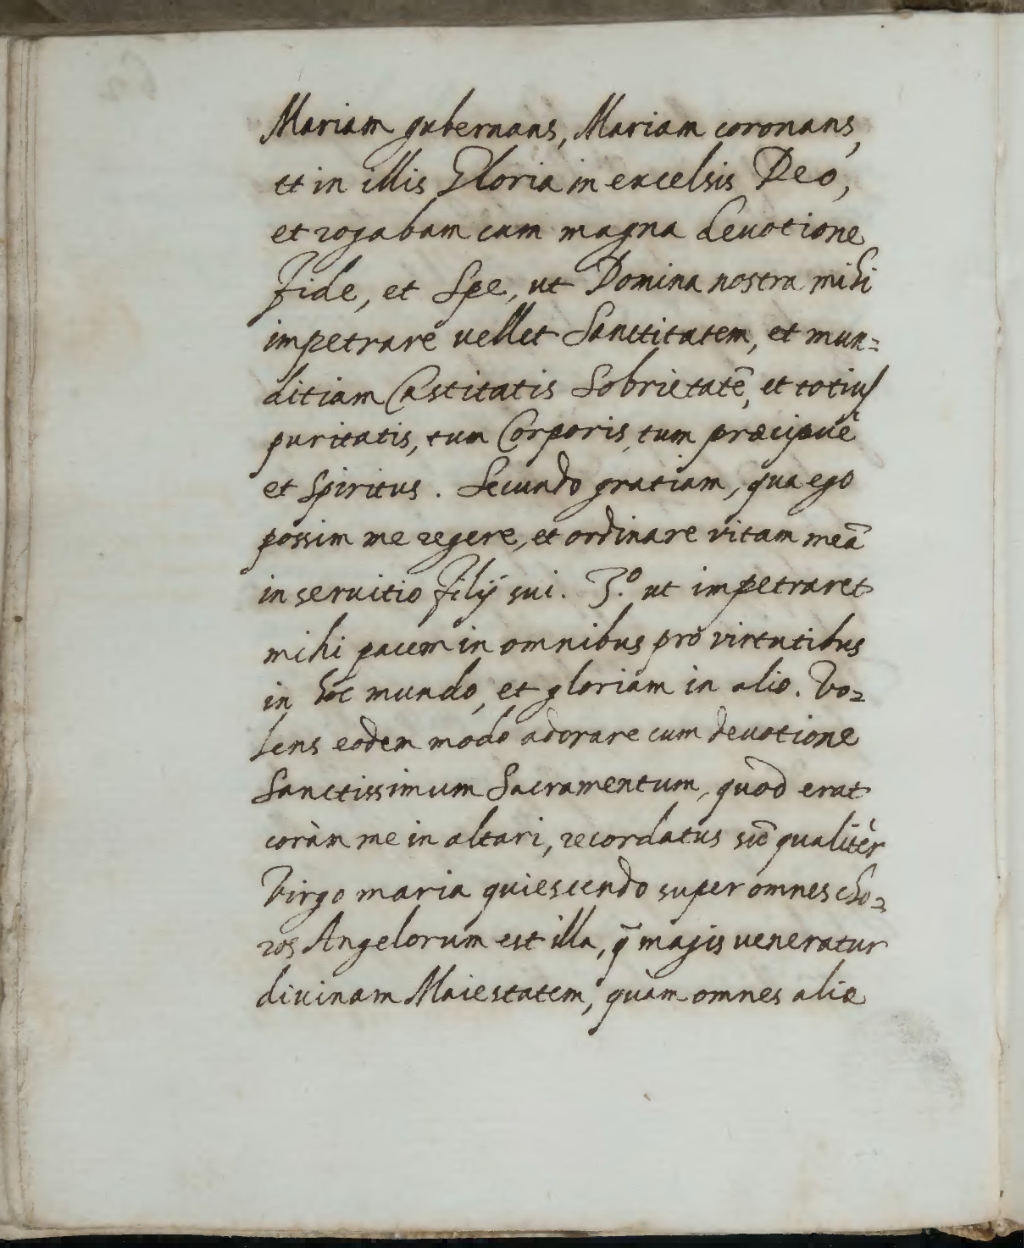 Mariam gubernans, Mariam coronans,
et in illis Gloria in excelsis Deo,
et rogabam cum magna devotione
fide, et Spe, ut Domina nostra mihi
impetrare vellet Sanctitatem, et mun=
ditiam Castitatis Sobrietatē, et totius
puritatis, tum Corporis, tum præcipuè
et Spiritus. Secundo gratiam, qua ego
possim me regere, et ordinare vitam meā
in servitio filij sui. 3.º ut impetraret
mihi pacem in omnibus pro virtutibus
in hoc mundo, et gloriam in alio. Vo=
lens eodem modo adorare cum devotione
Sanctissimum Sacramentum, quod erat
coràm me in altari, recordatus sū qualitèr
Virgo maria quiescendo super omnes cho=
ros Angelorum est illa, q̄ magis veneratur
divinam Maiestatem, quàm omnes aliæ